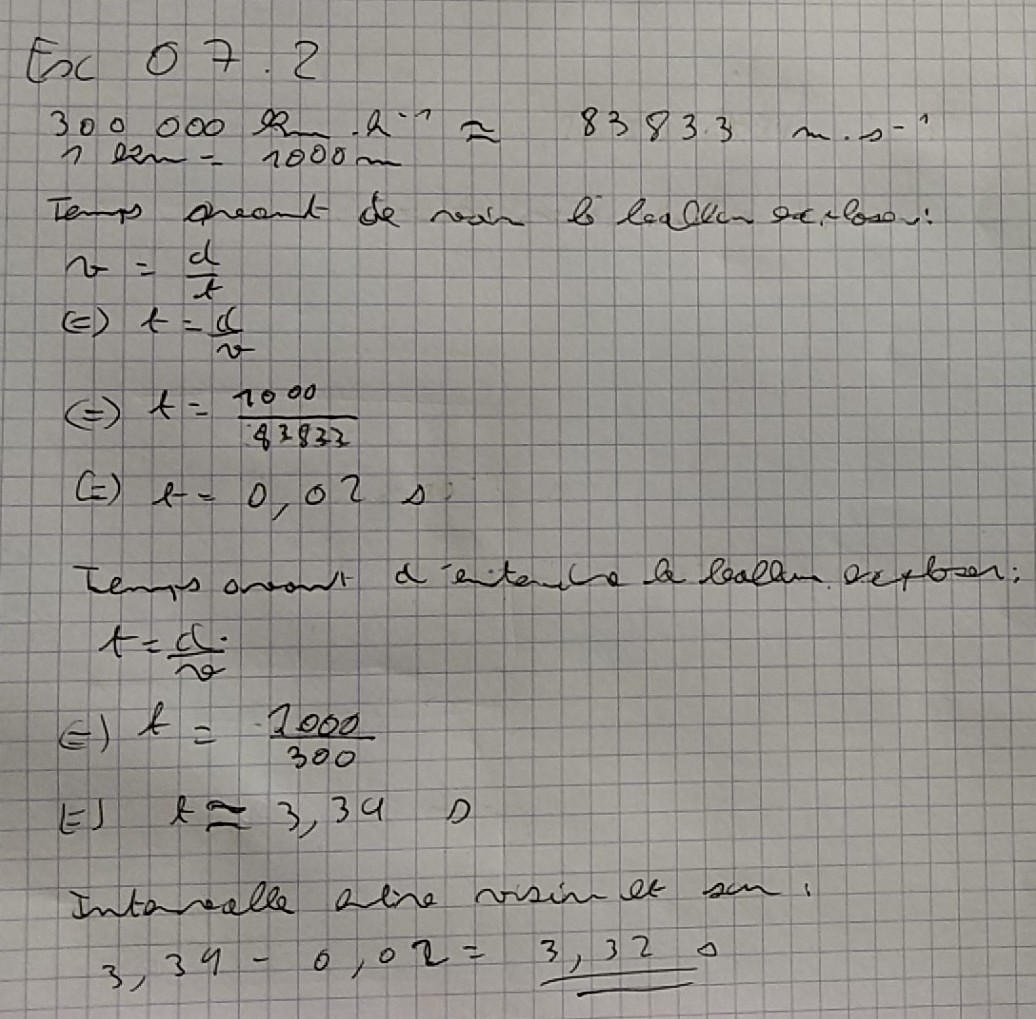 Exc 07.2
300 000 km.h⁻¹ ≈ 83833 m.s⁻¹
1 km = 1000 m
Temps avant de voir le ballon exploser:
v = d/t
(=) t = d/v
(=) t = 1000/83833
(=) t = 0,02 s
Temps avant d'entendre le ballon exploser:
t = d/v
(=) t = 1000/300
(=) t ≈ 3,34 s
Intervalle entre vision et son:
3,34 - 0,02 = 3,32 s